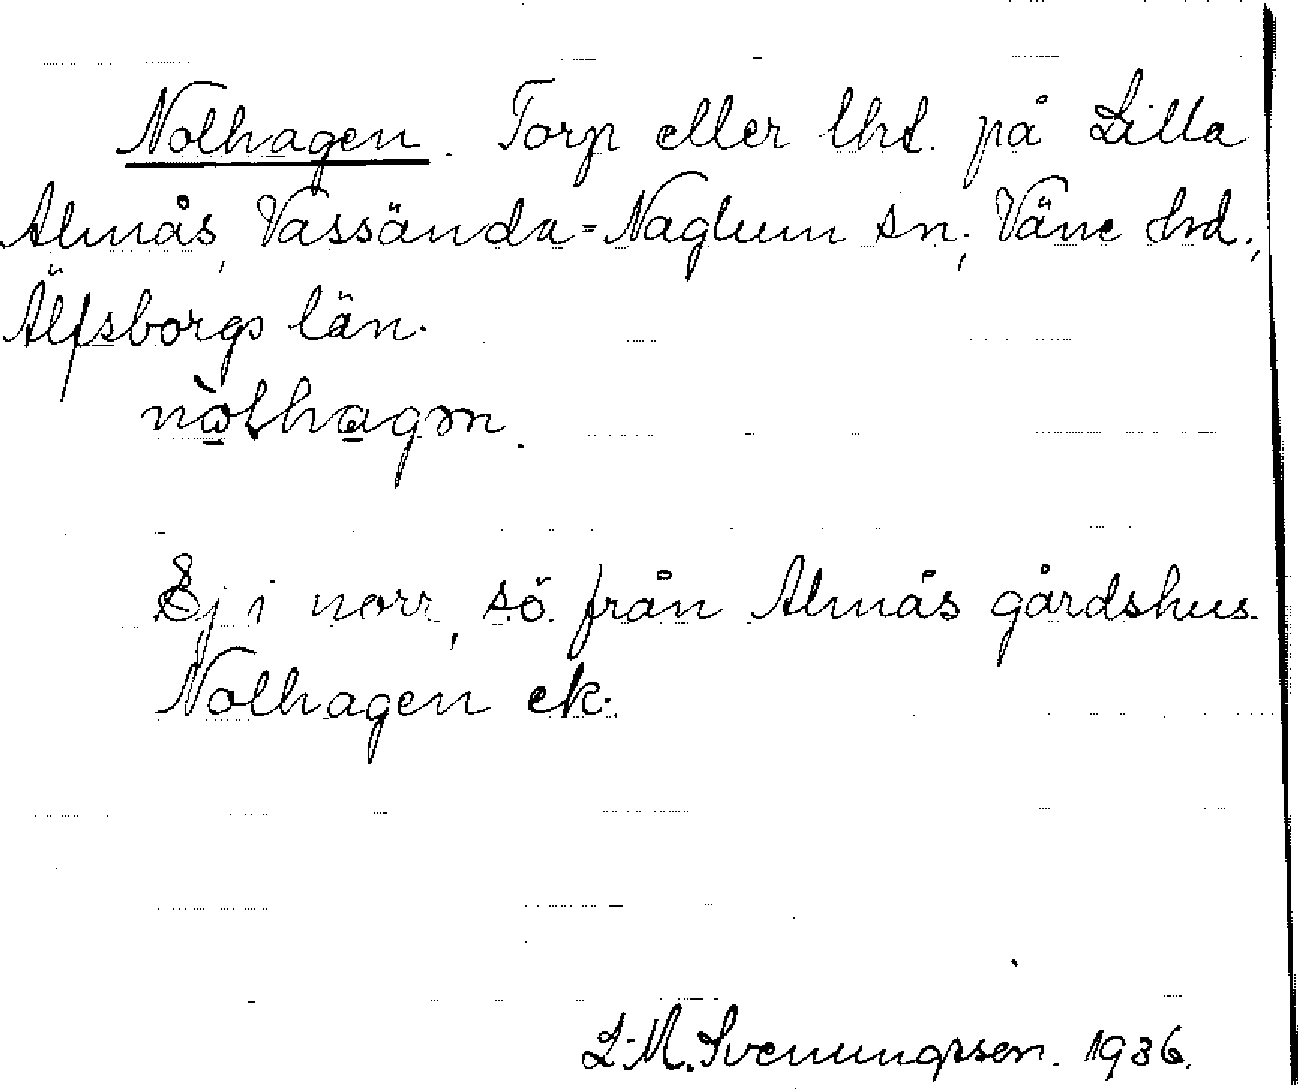 Nolhagen. Torp eller lht. på Lilla
Almås, Vassända-Naglum sn., Väne hd.,
Älfsborgs län.
nò̱lha̱gən.
Ej i norr, sö. från Almås gårdshus.
Nolhagen ek.
L.M. Svenungsson. 1936.